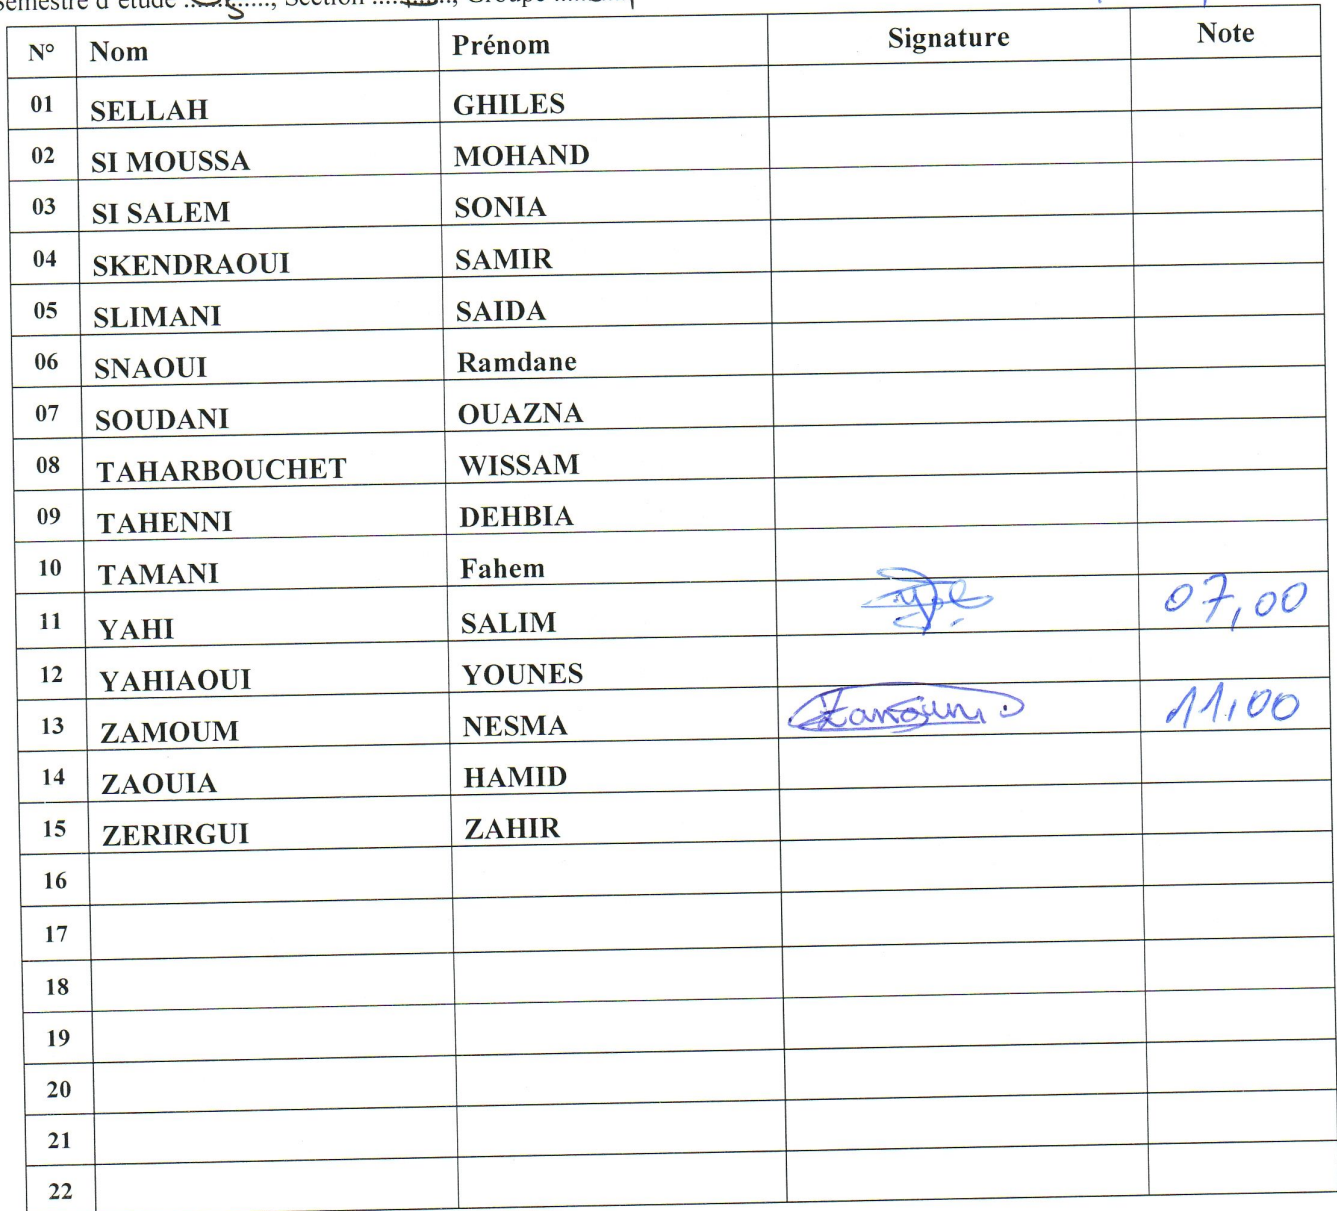 Semestre d'étude ............, Section ..........., Groupe ..........
N° Nom Prénom Signature Note
01 SELLAH GHILES
02 SI MOUSSA MOHAND
03 SI SALEM SONIA
04 SKENDRAOUI SAMIR
05 SLIMANI SAIDA
06 SNAOUI Ramdane
07 SOUDANI OUAZNA
08 TAHARBOUCHET WISSAM
09 TAHENNI DEHBIA
10 TAMANI Fahem
11 YAHI SALIM 07,00
12 YAHIAOUI YOUNES
13 ZAMOUM NESMA Zamoum 11,00
14 ZAOUIA HAMID
15 ZERIRGUI ZAHIR
16
17
18
19
20
21
22